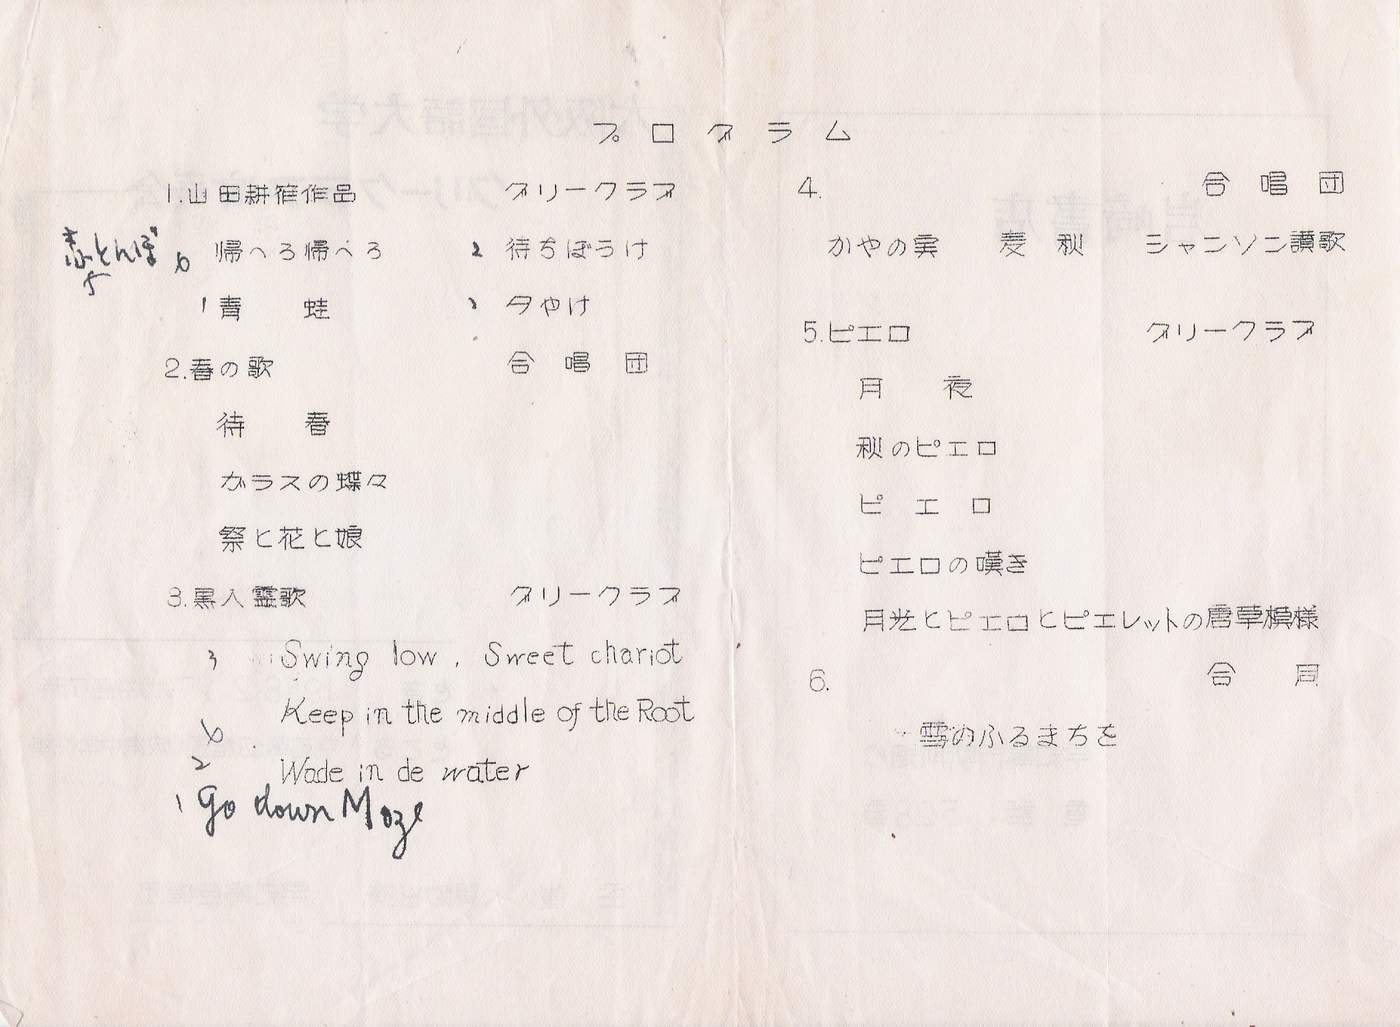 プログラム
1.山田耕筰作品 グリークラブ
赤とんぼ
5
6 帰へろ帰へろ 2 待ちぼうけ
1 青蛙 3 夕やけ
2.春の歌 合唱団
待春
ガラスの蝶々
祭と花と娘
3.黒人霊歌 グリークラブ
3 Swing low , Sweet chariot
Keep in the middle of the Root
2 Wade in de water
1 Go down Moze
4. 合唱団
かやの実 麦秋 シャンソン讃歌
5.ピエロ グリークラブ
月夜
秋のピエロ
ピエロ
ピエロの嘆き
月光とピエロとピエレットの唐草模様
6. 合同
雪のふるまちを